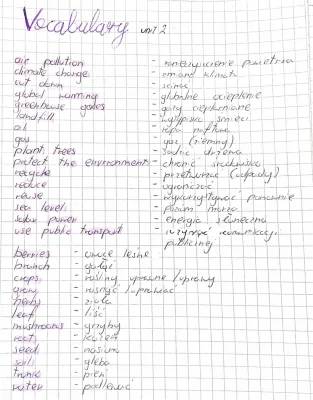 Vocabulary unit 2
air pollution - zanieczyszczenie powietrza
climate change - zmiana klimatu
cut down - ścinać
global warming - globalne ocieplenie
greenhouse gases - gazy cieplarniane
landfill - wysypisko śmieci
oil - ropa naftowa
gas - gaz (ziemny)
plant trees - sadzić drzewa
protect the environment - chronić środowisko
recycle - przetwarzać (odpady)
reduce - ograniczać
reuse - wykorzystywać ponownie
sea level - poziom morza
solar power - energia słoneczna
use public transport - komunikacji
publicznej
berries - owoce leśne
branch - gałąź
crops - rośliny uprawne / uprawy
grow - rosnąć /
herbs - zioła
leaf - liść
mushrooms - grzyby
root - korzeń
seed - nasiono
soil - gleba
trunk - pień
water - podlewać